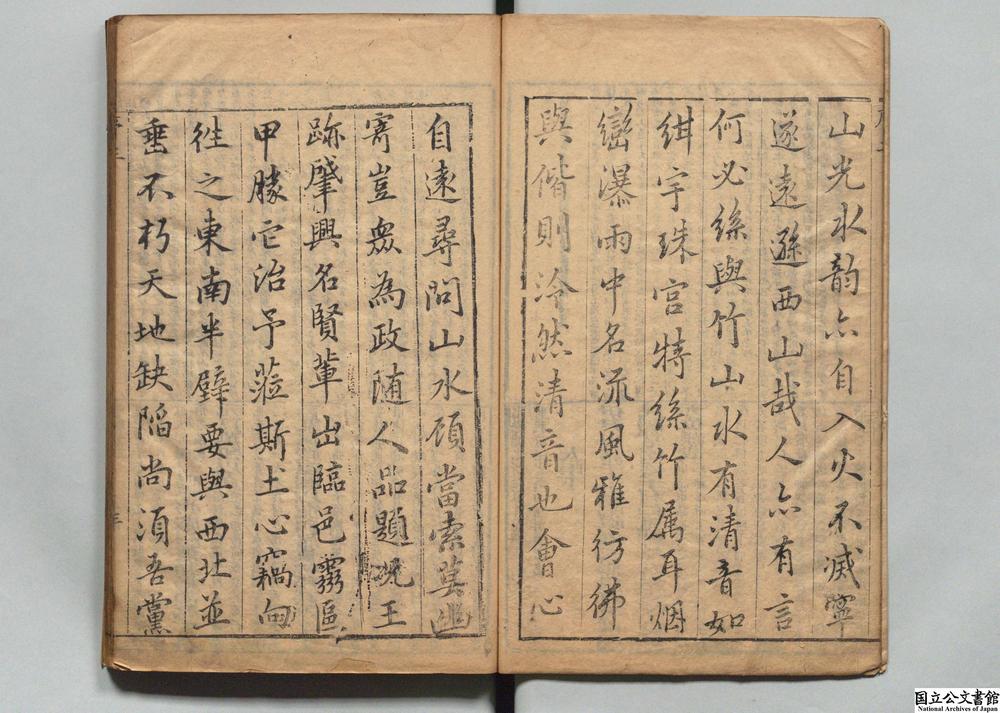 山光水韵亦自入火不滅寧
遂遠遜西山哉人亦有言
何必絲與竹山水有清音如
紺宇珠宫特絲竹属耳烟
巒瀑雨中名流風雅彷彿
與偕則泠然清音也會心
自遠尋問山水頎當索莫幽
寄豈盡為政随人品題況王
跡肇興名賢輩出臨邑靈區
甲勝它治予蒞斯土心竊向
徃之東南半壁要與西北並
垂不朽天地缺陷尚湏吾黨
国立公文書館
National Archives of Japan